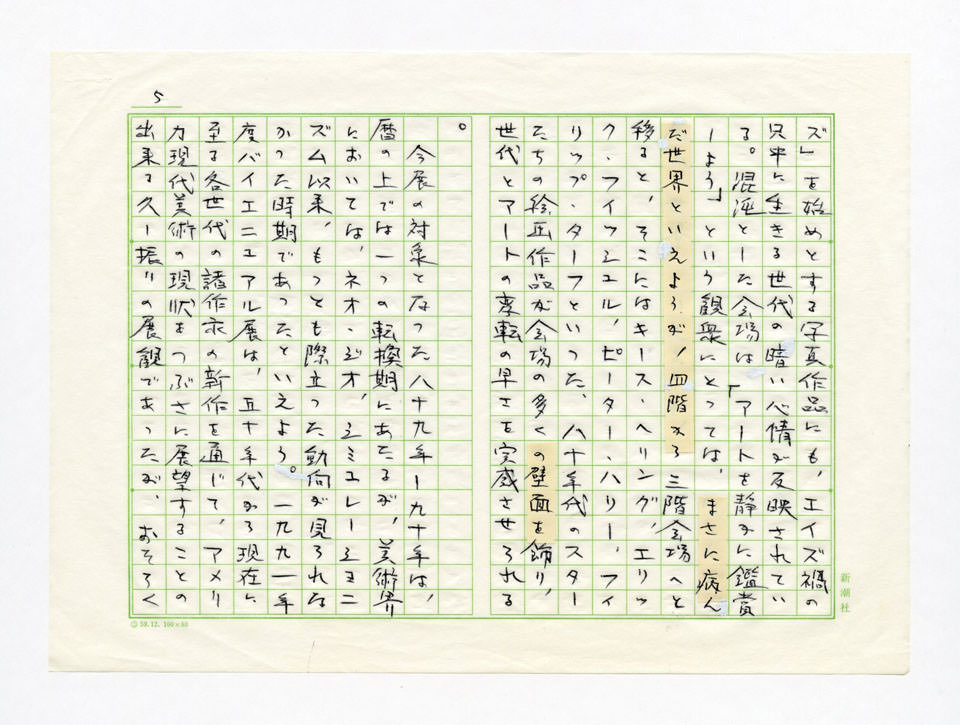 5
ズ」を始めとする写真作品にも、エイズ禍の
只中に生きる世代の暗い心情が反映されてい
る。混沌とした会場は、「アートを静かに鑑賞
しよう」という観衆にとっては、まさに病ん
だ世界といえようが、四階から三階会場へと
移ると、そこにはキース・ヘリング、エリッ
ク・フィッシュル、ピーター・ハリー、フィ
リップ・ターフといった、八十年代のスター
たちの絵画作品が会場の多くの壁面を飾り、
世代とアートの変転の早さを実感させられる
。
今展の対象となった八十九年ー九十年は、
暦の上では一つの転換期にあたるが、美術界
においては、ネオ・ジオ、シミュレーショニ
ズム以来、もっとも際立った動向が見られな
かった時期であったといえよう。一九九一年
度バイエニュアル展は、五十年代から現在に
至る各世代の諸作家の新作を通じて、アメリ
カ現代美術の現状をつぶさに展望することの
出来る久し振りの展観であったが、おそらく
新潮社
59.12. 100×80